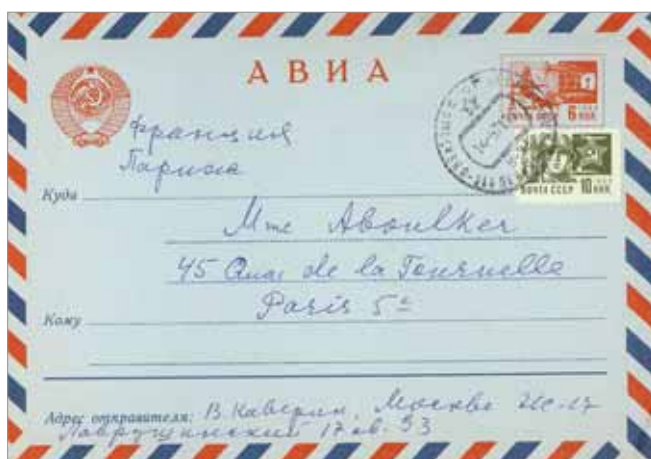 АВИА
ПОЧТА СССР 6 КОП
ПОЧТА СССР 10 КОП
Франция
Париж
Куда
Mme Aboulker
45 Quai de la Tournelle
Paris 5e
Кому
Адрес отправителя: В. Каверин, Москва Ж-17
Лаврушинский 17 кв. 93